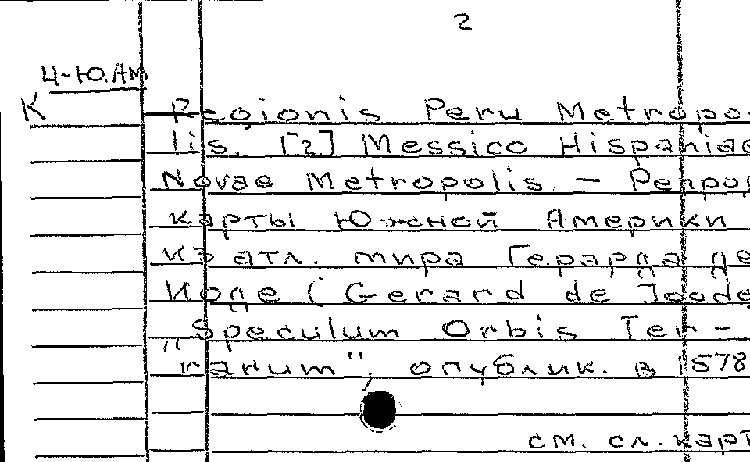 2
4-Ю.Ам
К
Regionis Peru Metropo
lis. [2] Messico Hispaniae
Novae Metropolis. – Репро
карты Южной Америки
из атл. мира Герарда де
Иоде (Gerard de Joode
„Speculum Orbis Ter-
rarum", опублик. в 1578
см. сл. карт